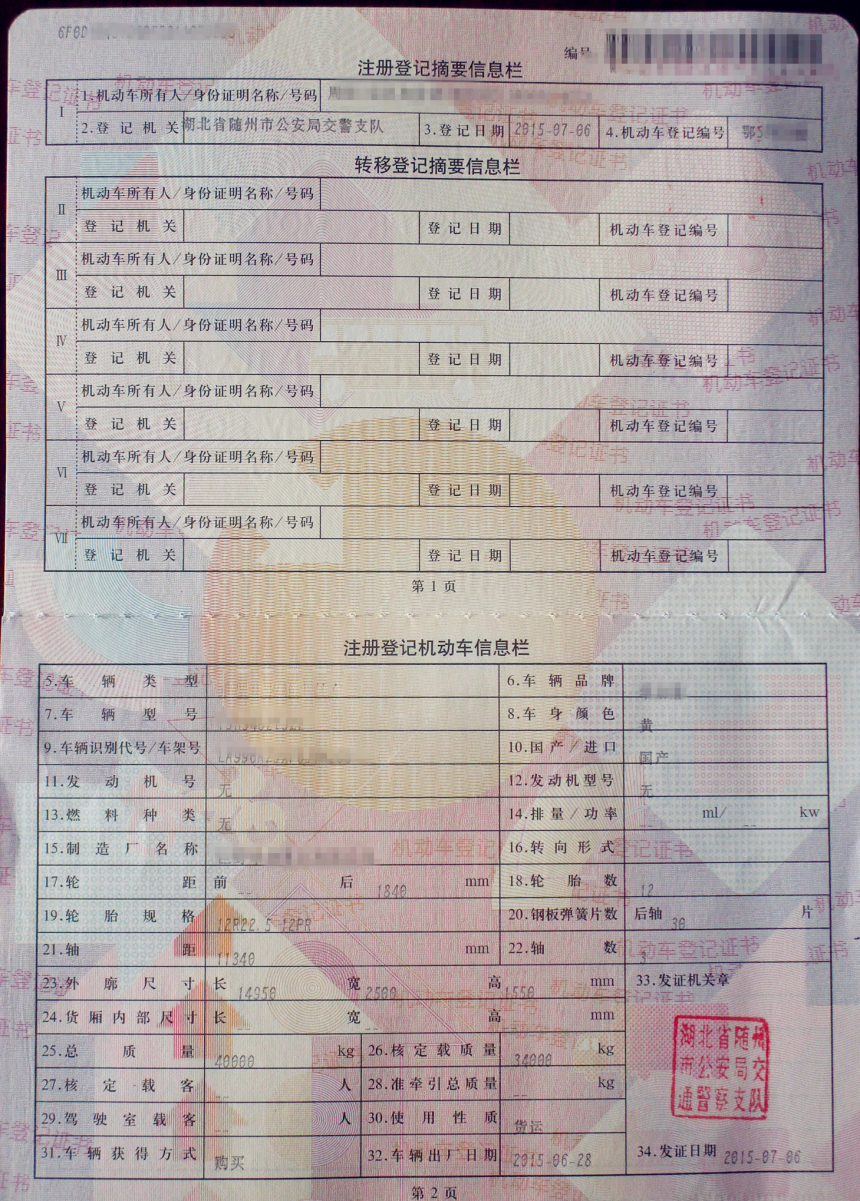 编号
注册登记摘要信息栏
Ⅰ 1.机动车所有人/身份证明名称/号码
2.登记机关 湖北省随州市公安局交警支队 3.登记日期 2015-07-06 4.机动车登记编号 鄂
转移登记摘要信息栏
Ⅱ 机动车所有人/身份证明名称/号码
登记机关 登记日期 机动车登记编号
Ⅲ 机动车所有人/身份证明名称/号码
登记机关 登记日期 机动车登记编号
Ⅳ 机动车所有人/身份证明名称/号码
登记机关 登记日期 机动车登记编号
Ⅴ 机动车所有人/身份证明名称/号码
登记机关 登记日期 机动车登记编号
Ⅵ 机动车所有人/身份证明名称/号码
登记机关 登记日期 机动车登记编号
Ⅶ 机动车所有人/身份证明名称/号码
登记机关 登记日期 机动车登记编号
第1页
注册登记机动车信息栏
5.车辆类型 6.车辆品牌
7.车辆型号 8.车身颜色 黄
9.车辆识别代号/车架号 10.国产/进口 国产
11.发动机号 无 12.发动机型号 无
13.燃料种类 无 14.排量/功率 -- ml/ -- kw
15.制造厂名称 16.转向形式
17.轮距 前 -- 后 1840 mm 18.轮胎数 12
19.轮胎规格 12R22.5 12PR 20.钢板弹簧片数 后轴 30 片
21.轴距 11340 mm 22.轴数 3
23.外廓尺寸 长 14950 宽 2500 高 1550 mm 33.发证机关章
24.货厢内部尺寸 长 -- 宽 -- 高 -- mm
25.总质量 40000 kg 26.核定载质量 34000 kg
27.核定载客 -- 人 28.准牵引总质量 -- kg
29.驾驶室载客 -- 人 30.使用性质 货运
湖北省随州
市公安局交
通警察支队
31.车辆获得方式 购买 32.车辆出厂日期 2015-06-28 34.发证日期 2015-07-06
第2页